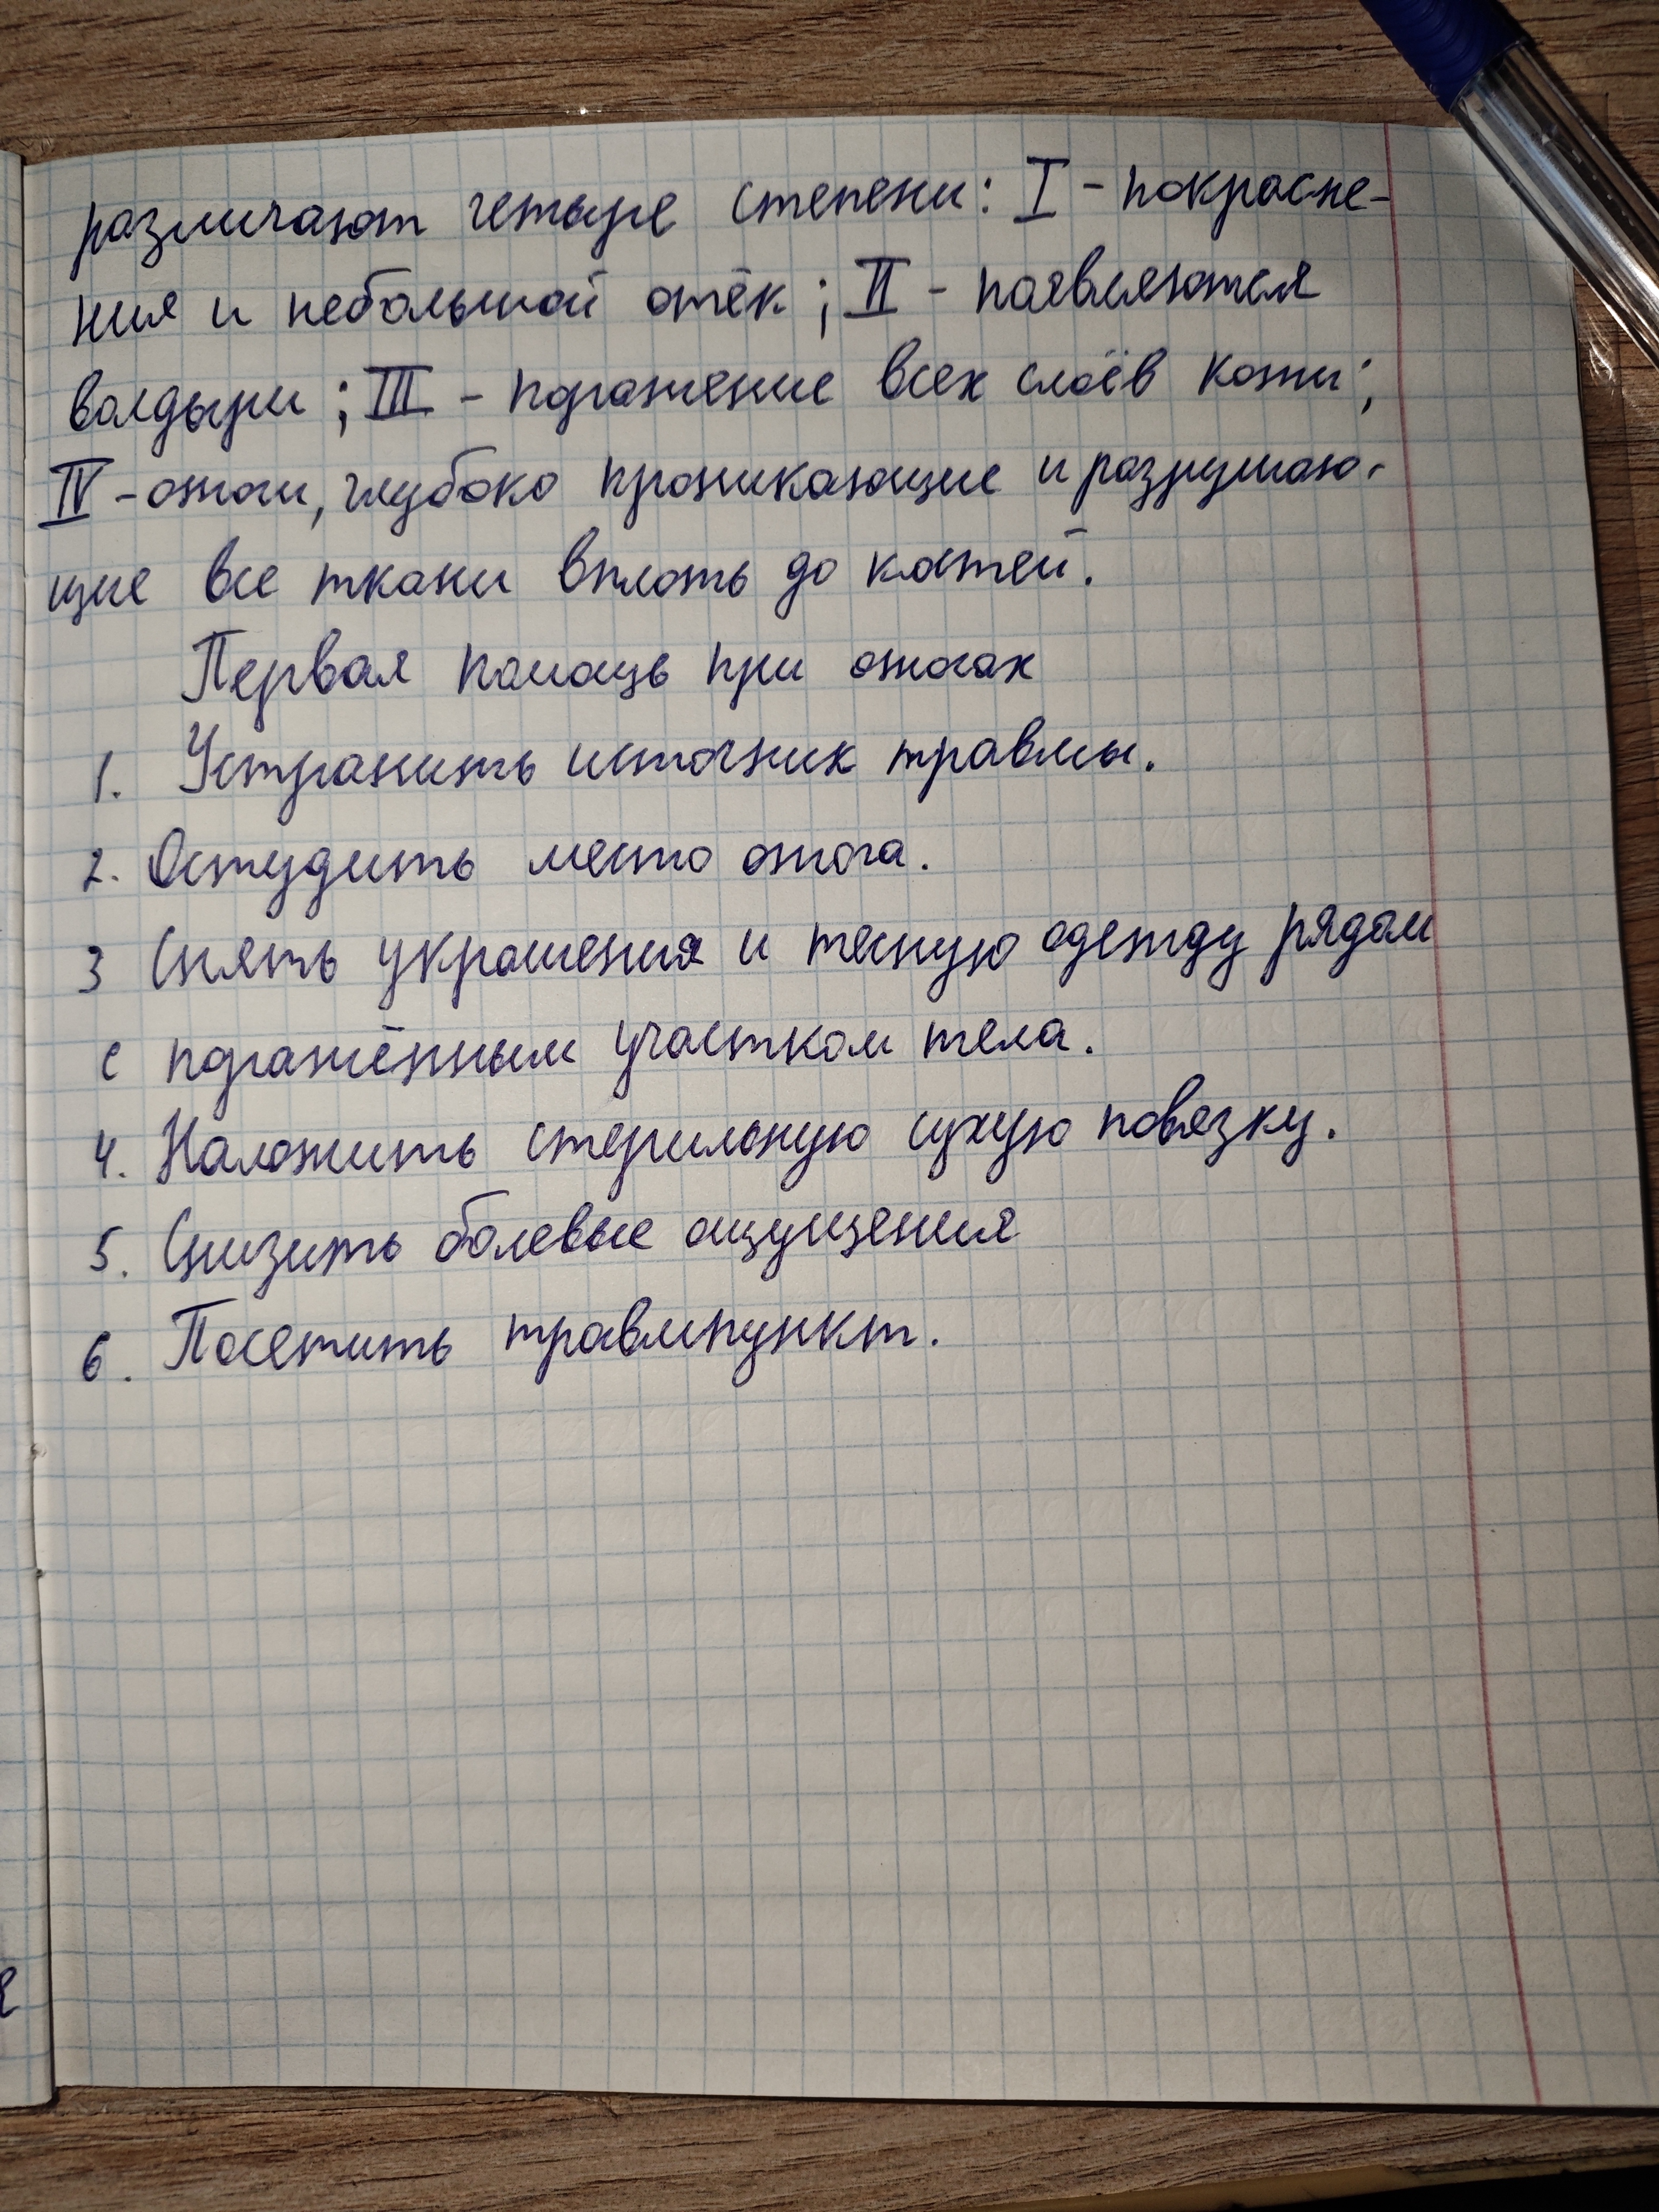 различают четыре степени: I - покрасне-
ния и небольшой отёк; II - появляются
волдыри; III - поражение всех слоёв кожи;
IV - ожоги, глубоко проникающие и разрушаю-
щие все ткани вплоть до костей.
Первая помощь при ожогах
1. Устранить источник травмы.
2. Остудить место ожога.
3 Снять украшения и тесную одежду рядом
с поражённым участком тела.
4. Наложить стерильную сухую повязку.
5. Снизить болевые ощущения
6. Посетить травмпункт.